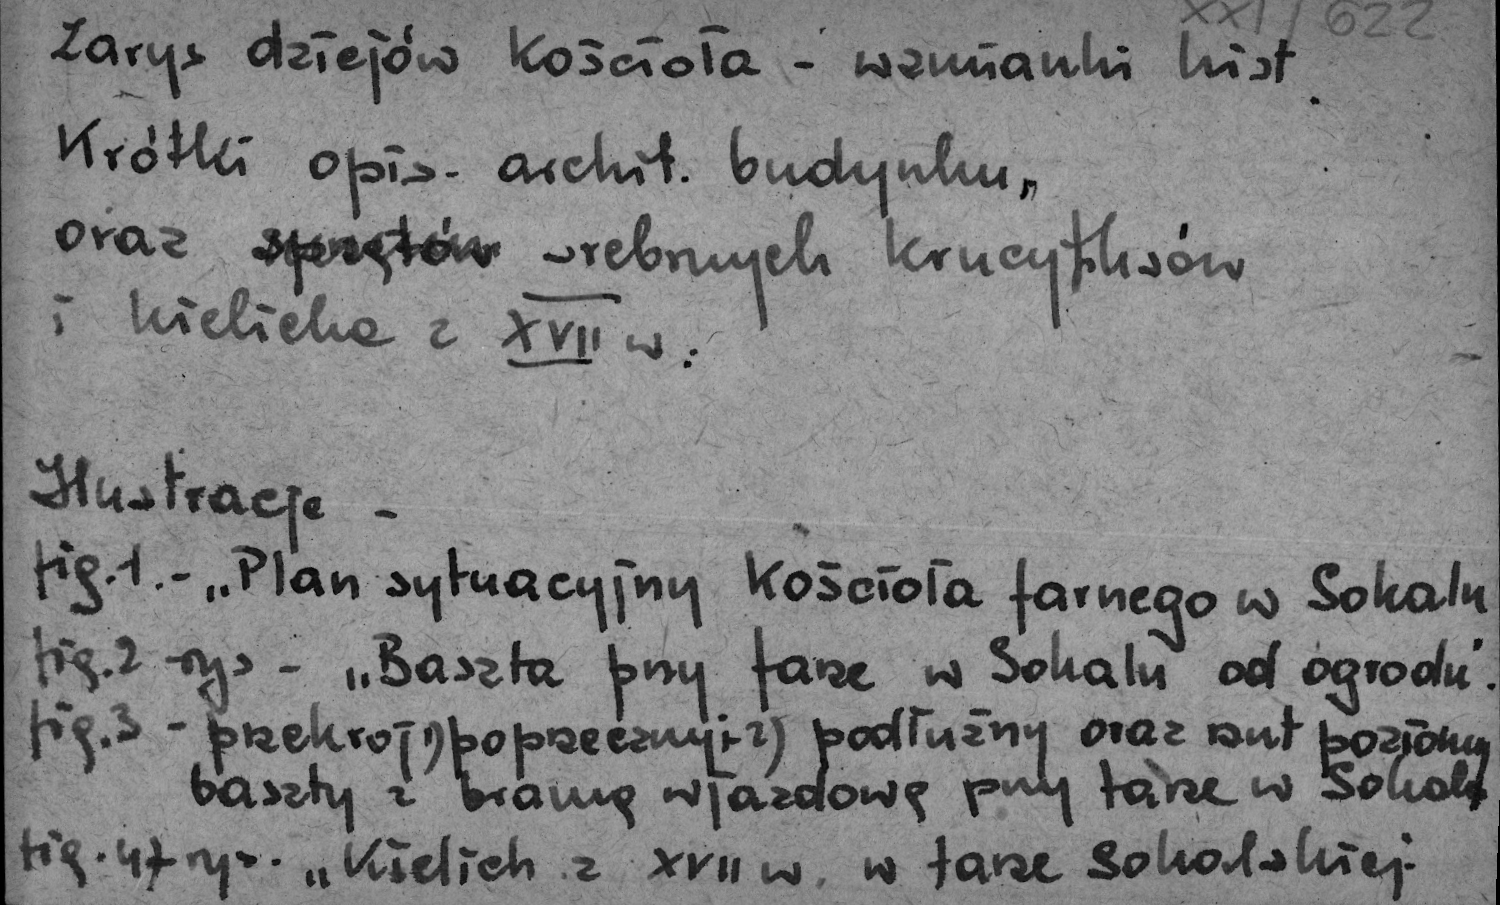 XXI/622
Zarys dziejów Kościoła - wzmianki hist.
Krótki opis. archit. budynku,
oraz sprzętów srebrnych krucyfiksów
i kielicha z XVII w.
Ilustracje -
fig.1.- „Plan sytuacyjny Kościoła farnego w Sokalu
fig.2 -rys - „Baszta przy farze w Sokalu od ogrodu".
fig.3 - przekrój 1) poprzeczny i 2) podłużny oraz rzut poziomy
baszty z bramą wjazdową przy farze w Sokalu
fig. 4 rys. „Kielich z XVII w. w farze Sokalskiej.